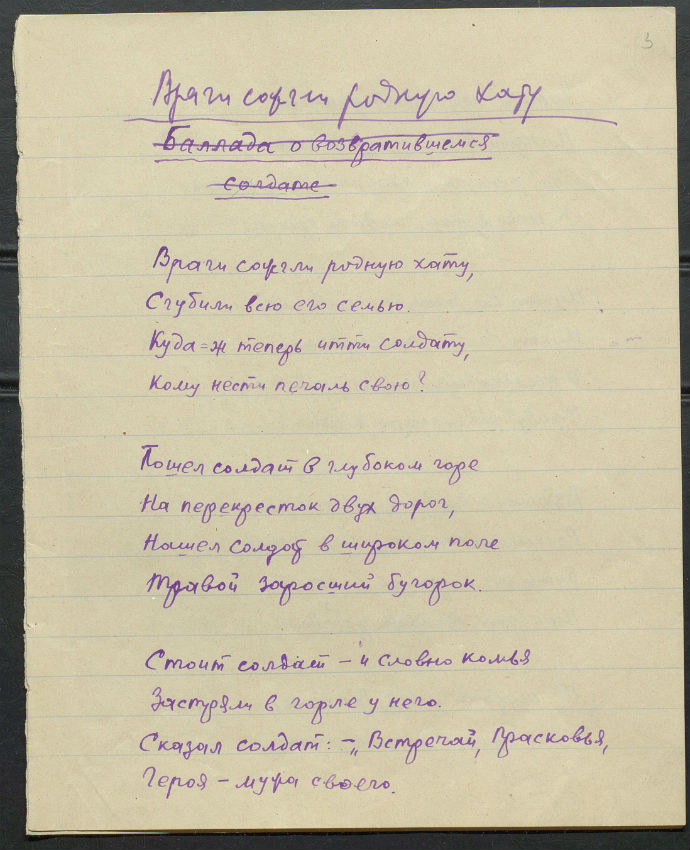 3
Враги сожгли родную хату
Баллада о возвратившемся
солдате
Враги сожгли родную хату,
Сгубили всю его семью.
Куда=ж теперь итти солдату,
Кому нести печаль свою?
Пошел солдат в глубоком горе
На перекресток двух дорог,
Нашел солдат в широком поле
Травой заросший бугорок.
Стоит солдат – и словно комья
Застряли в горле у него.
Сказал солдат: – „Встречай, Прасковья,
Героя – мужа своего.